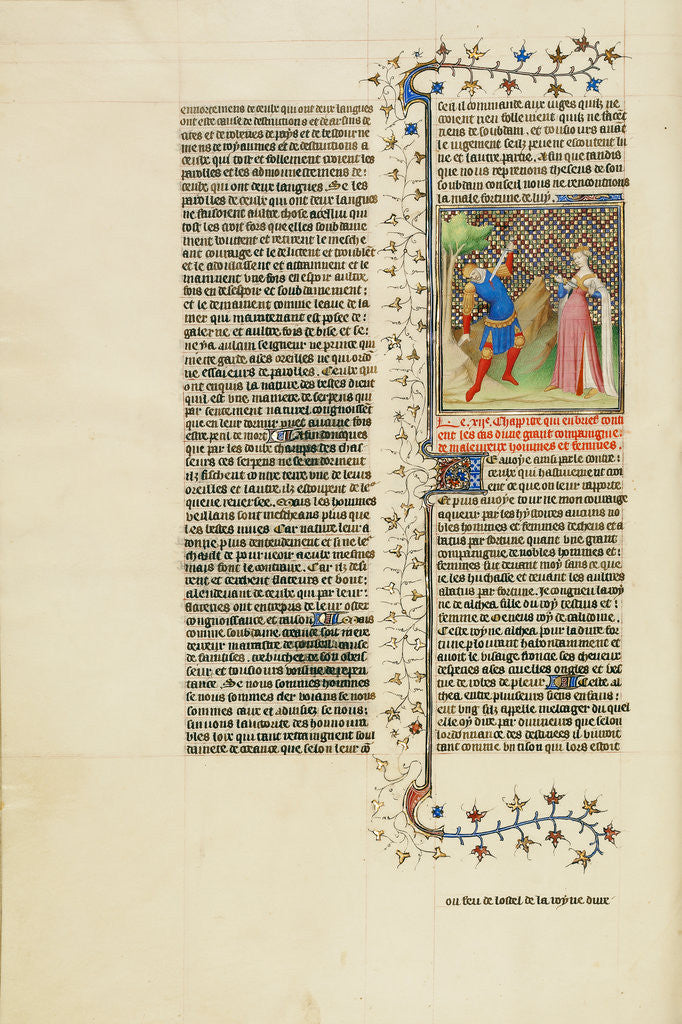 ennortemens de ceulx qui ont deux langues
ont este cause de destructions et de arsins de
cites et de roberies de pays et de bestourne
mens de royaumes et de destructions a
ceulx qui tost et follement croient les
parolles et les admonnestemens de
ceulx qui ont deux langues. Se les
parolles de ceulx qui ont deux langues
ne faisoient aultre chose a celluy qui
tost les croit fors que elles soubdaine
ment boutent et retirent le mesche
ant courage et le delictent et troublent
et le adoulcissent et attaiment et le
mainnent une fois en espoir aultre
fois en desespoir et soubdainement
et le demainent comme leaue de la
mer qui maintenant est posee de
galerne et aultre fois de bise et se
ne y a aulcun seigneur ne prince qui
mecte garde a ses oreilles ne qui ordo
ne essaieurs de parolles. Ceulx qui
ont enquis la nature des bestes dient
quil est une maniere de serpens qui
par sentement naturel congnoissent
que en leur dormir puet aucune fois
estre peril de mort Affin doncques
que par les doulx champs des chas
seurs ces serpens ne se endorment
ilz fischent contre terre une de leurs
oreilles et lautre ilz estoupent de le
queue reversee. Mais les hommes
veillans sont meschans plus que
les bestes mues Car nature leur a
donne plus dentendement et si ne le
chault de pourveoir a eulx mesmes
mais font le contraire. Car ilz desi
rent et cerchent flateurs et bout
alendevant de ceulx qui par leur
flateries ont entrepris de leur oster
congnoissance et raison Mais
comme soubdaine creance soit mere
derreur marrastre de conseil cause
de trebucher de son obeis
seur et tousiours voisine de repen
tance. Se nous sommes hommes
se nous sommes cler voians se nous
sommes caux et advisez se nous
suivons lauctorite des honnoura
bles loix qui tant restraingnent soul
daineté de creance que selon leur co
seil il commande aux iuges quilz ne
croient rien follement quilz ne facet
riens de soubdain. et tousiours avat
le iugement seilz pevent escoutent lu
ne et lautre partie. Afin que tandis
que nous reprenons theseus de son
soubdain conseil nous ne rencontrions
la male fortune de luy.
Le .xii.e Chappitre qui en brief conti
ent les cas dune grant compaignie
de maleureux hommes et femmes.
Je avoye ainsi parle contre
ceulx qui hastivement croi
ent ce que on leur rapporte
Et puis avoye tourne mon courage
a querir par les hystoires aucuns no
bles hommes et femmes decheus et a
batus par fortune quant une grant
compaignie de nobles hommes et
femmes fut devant moy sans ce que
ie les huchasse et devant les aultres
abatus par fortune. Je congneu la roy
ne de althea fille du roy testius et
femme de Oeneus roy de calidoine.
Ceste royne althea pour la dure for
tune plouroit habondamment et
avoit le visaige fronce les cheveux
despecies a ses cruelles ongles et ves
tue de robes de pleur Ceste al
thea entre plusieurs siens enfans
eut ung filz appelle meleager du quel
elle oy dire par divineurs que selon
lordonnance des destinees il vivroit
tant comme un tison qui lors estoit
ou feu de lostel de la royne dure